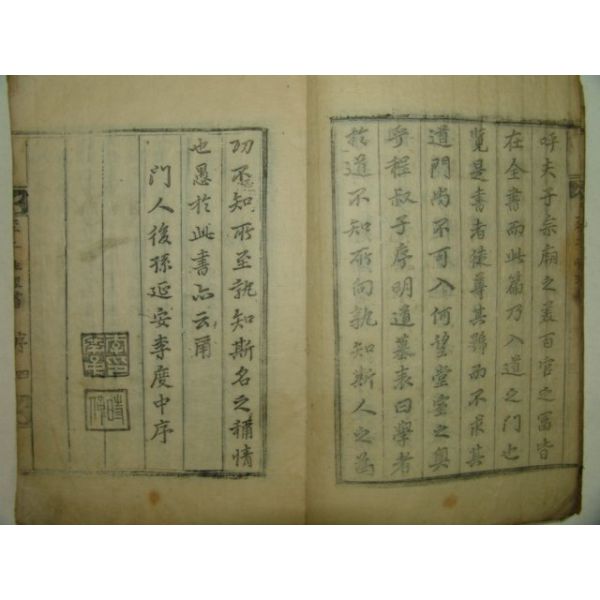 呼夫子宗廟之美百官之富皆
在全書而此篇乃入道之門也
覽是書者徒尊其號而不求其
道門尚不可入何望堂室之奧
乎程叔子序明道墓表曰學者
於道不知所向孰知斯人之爲
功不知所至孰知斯名之稱情
也愚於此書亦云爾
門人後孫延安李度中序
序
四